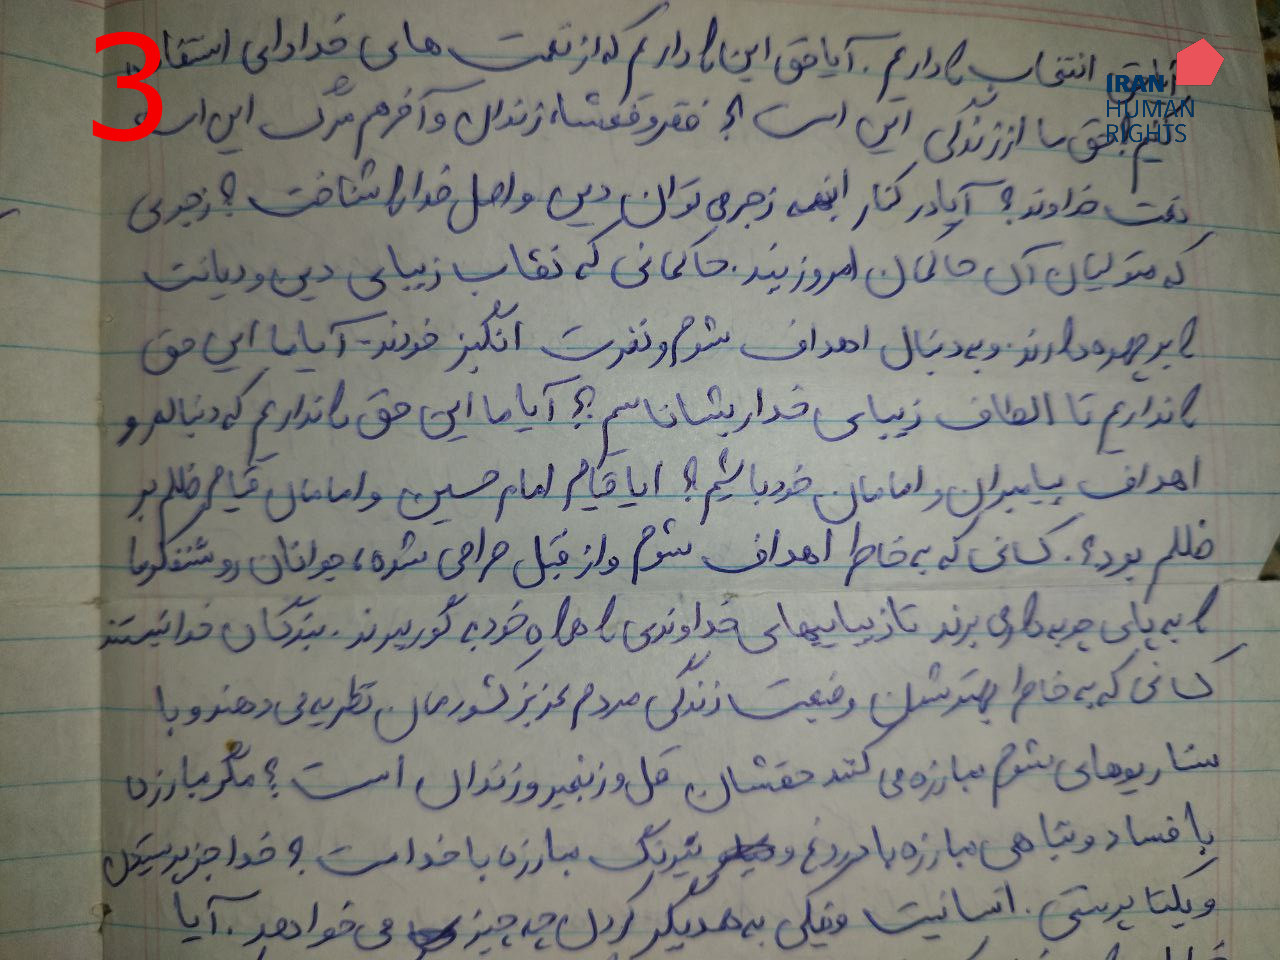 3
IRAN
HUMAN
RIGHTS
انتخاب را داریم. آیا حق این را داریم که از نعمت های خدادادی استفا
حق ما از زندگی این است؟ فقر و فحشا، زندان و آخر هم مرگ این است
نعمت خداوند؟ آیا در کنار این زجر می توان دین و اصل خدا را شناخت؟ زجری
که متولیان آن حاکمان امروزیند. حاکمانی که نقاب زیبایی دین و دیانت
را بر چهره دارند و به دنبال اهداف شوم و نفرت انگیز خودند. آیا ما این حق
را نداریم تا الطاف زیبای خدا را بشناسیم؟ آیا ما این حق را نداریم که دنباله رو
اهداف پیامبران و امامان خود باشیم؟ ایا قیام امام حسین و امامان قیام ظلم بر
ظلم بود؟. کسانی که به خاطر اهداف شوم و از قبل طراحی شده، جوانان روشنفکر ما
را به پای چوبه دار می برند تا زیباییهای خداوندی را همراه خود به گور ببرند. بندگان خدا نیستند
کسانی که به خاطر بهتر شدن وضعیت زندگی مردم عزیز کشورمان نظریه می دهند و با
سناریوهای شوم مبارزه می کنند حقشان غل و زنجیر و زندان است؟ مگر مبارزه
با فساد و تباهی مبارزه با دروغ و نیرنگ مبارزه با خداست؟ خدا جز پرستیدن
و یکتا پرستی. انسانیت و نیکی به همدیگر کردن چه چیز می خواهد. آیا